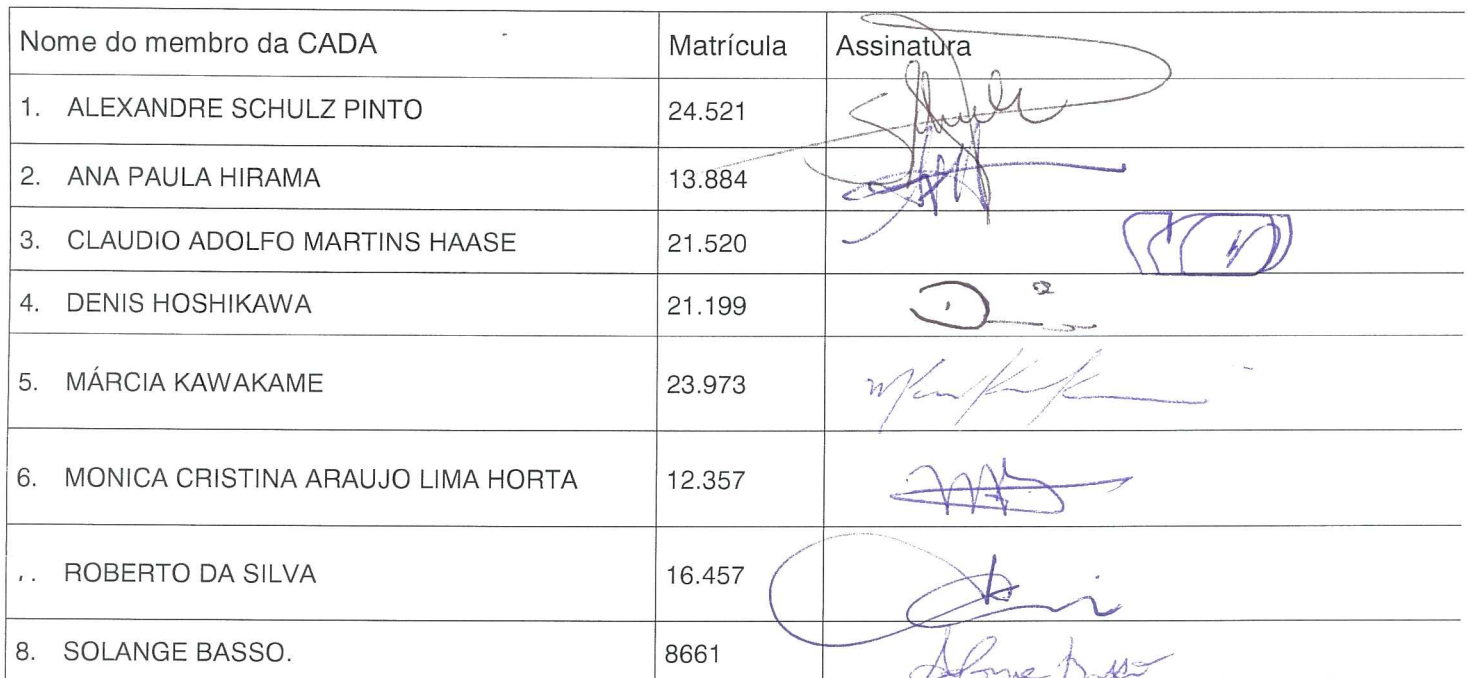 Nome do membro da CADA Matrícula Assinatura
1. ALEXANDRE SCHULZ PINTO 24.521
2. ANA PAULA HIRAMA 13.884
3. CLAUDIO ADOLFO MARTINS HAASE 21.520
4. DENIS HOSHIKAWA 21.199
5. MÁRCIA KAWAKAME 23.973
6. MONICA CRISTINA ARAUJO LIMA HORTA 12.357
ROBERTO DA SILVA 16.457
8. SOLANGE BASSO. 8661 Solange Basso